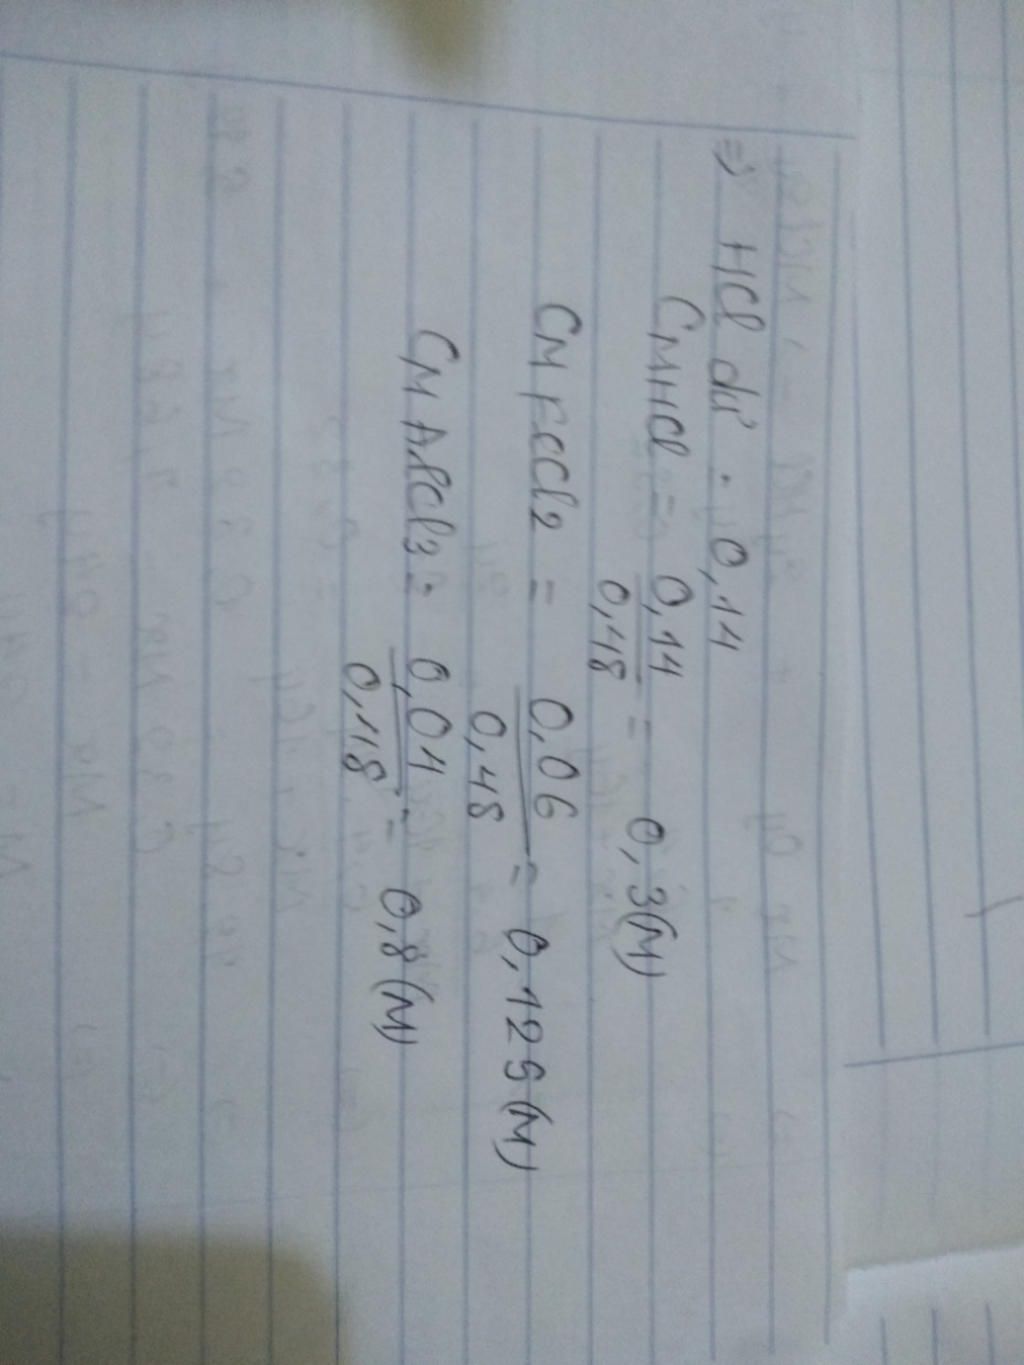 => HCl dư : 0,14
CMHCl = 0,14 / 0,48 = 0,3(M)
CM FeCl2 = 0,06 / 0,48 = 0,125(M)
CM AlCl3 = 0,04 / 0,48 = 0,8(M)